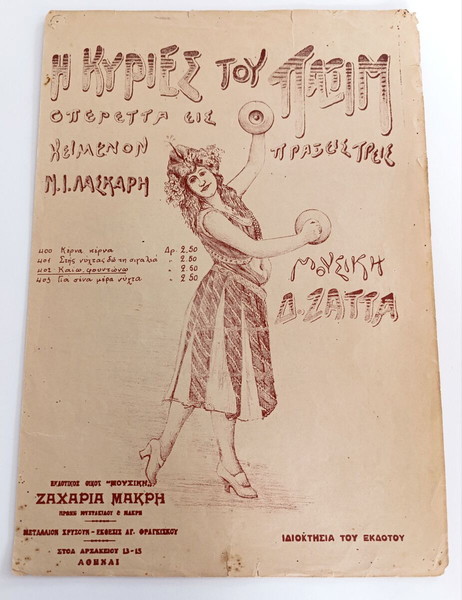 Η ΚΥΡΙΕΣ ΤΟΥ ΠΑΞΙΜ
ΟΠΕΡΕΤΤΑ ΕΙΣ
ΠΡΑΞΕΙΣ ΤΡΕΙΣ
ΚΕΙΜΕΝΟΝ
Ν.Ι. ΛΑΣΚΑΡΗ
400 Κέρνα κέρνα Δρ. 2.50
401 Στής νύχτας δω τη σιγαλιά " 2.50
402 Καίω φουντώνω " 2.50
403 Για σένα μέρα νύχτα " 2.50
ΜΟΥΣΙΚΗ
Δ. ΖΑΤΤΑ
ΕΚΔΟΤΙΚΟΣ ΟΙΚΟΣ "ΜΟΥΣΙΚΗ"
ΖΑΧΑΡΙΑ ΜΑΚΡΗ
ΠΡΩΗΝ ΜΥΣΤΑΚΙΔΟΥ & ΜΑΚΡΗ
ΜΕΤΑΛΛΙΟΝ ΧΡΥΣΟΥΝ - ΕΚΘΕΣΙΣ ΑΓ. ΦΡΑΓΚΙΣΚΟΥ
ΣΤΟΑ ΑΡΣΑΚΕΙΟΥ 13-15
ΑΘΗΝΑΙ
ΙΔΙΟΚΤΗΣΙΑ ΤΟΥ ΕΚΔΟΤΟΥ